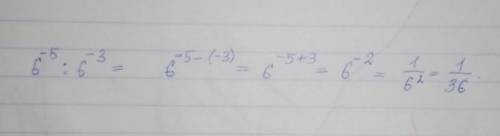 6⁻⁵ : 6⁻³ = 6⁻⁵⁻⁽⁻³⁾ = 6⁻⁵⁺³ = 6⁻² = 1/6² = 1/36.